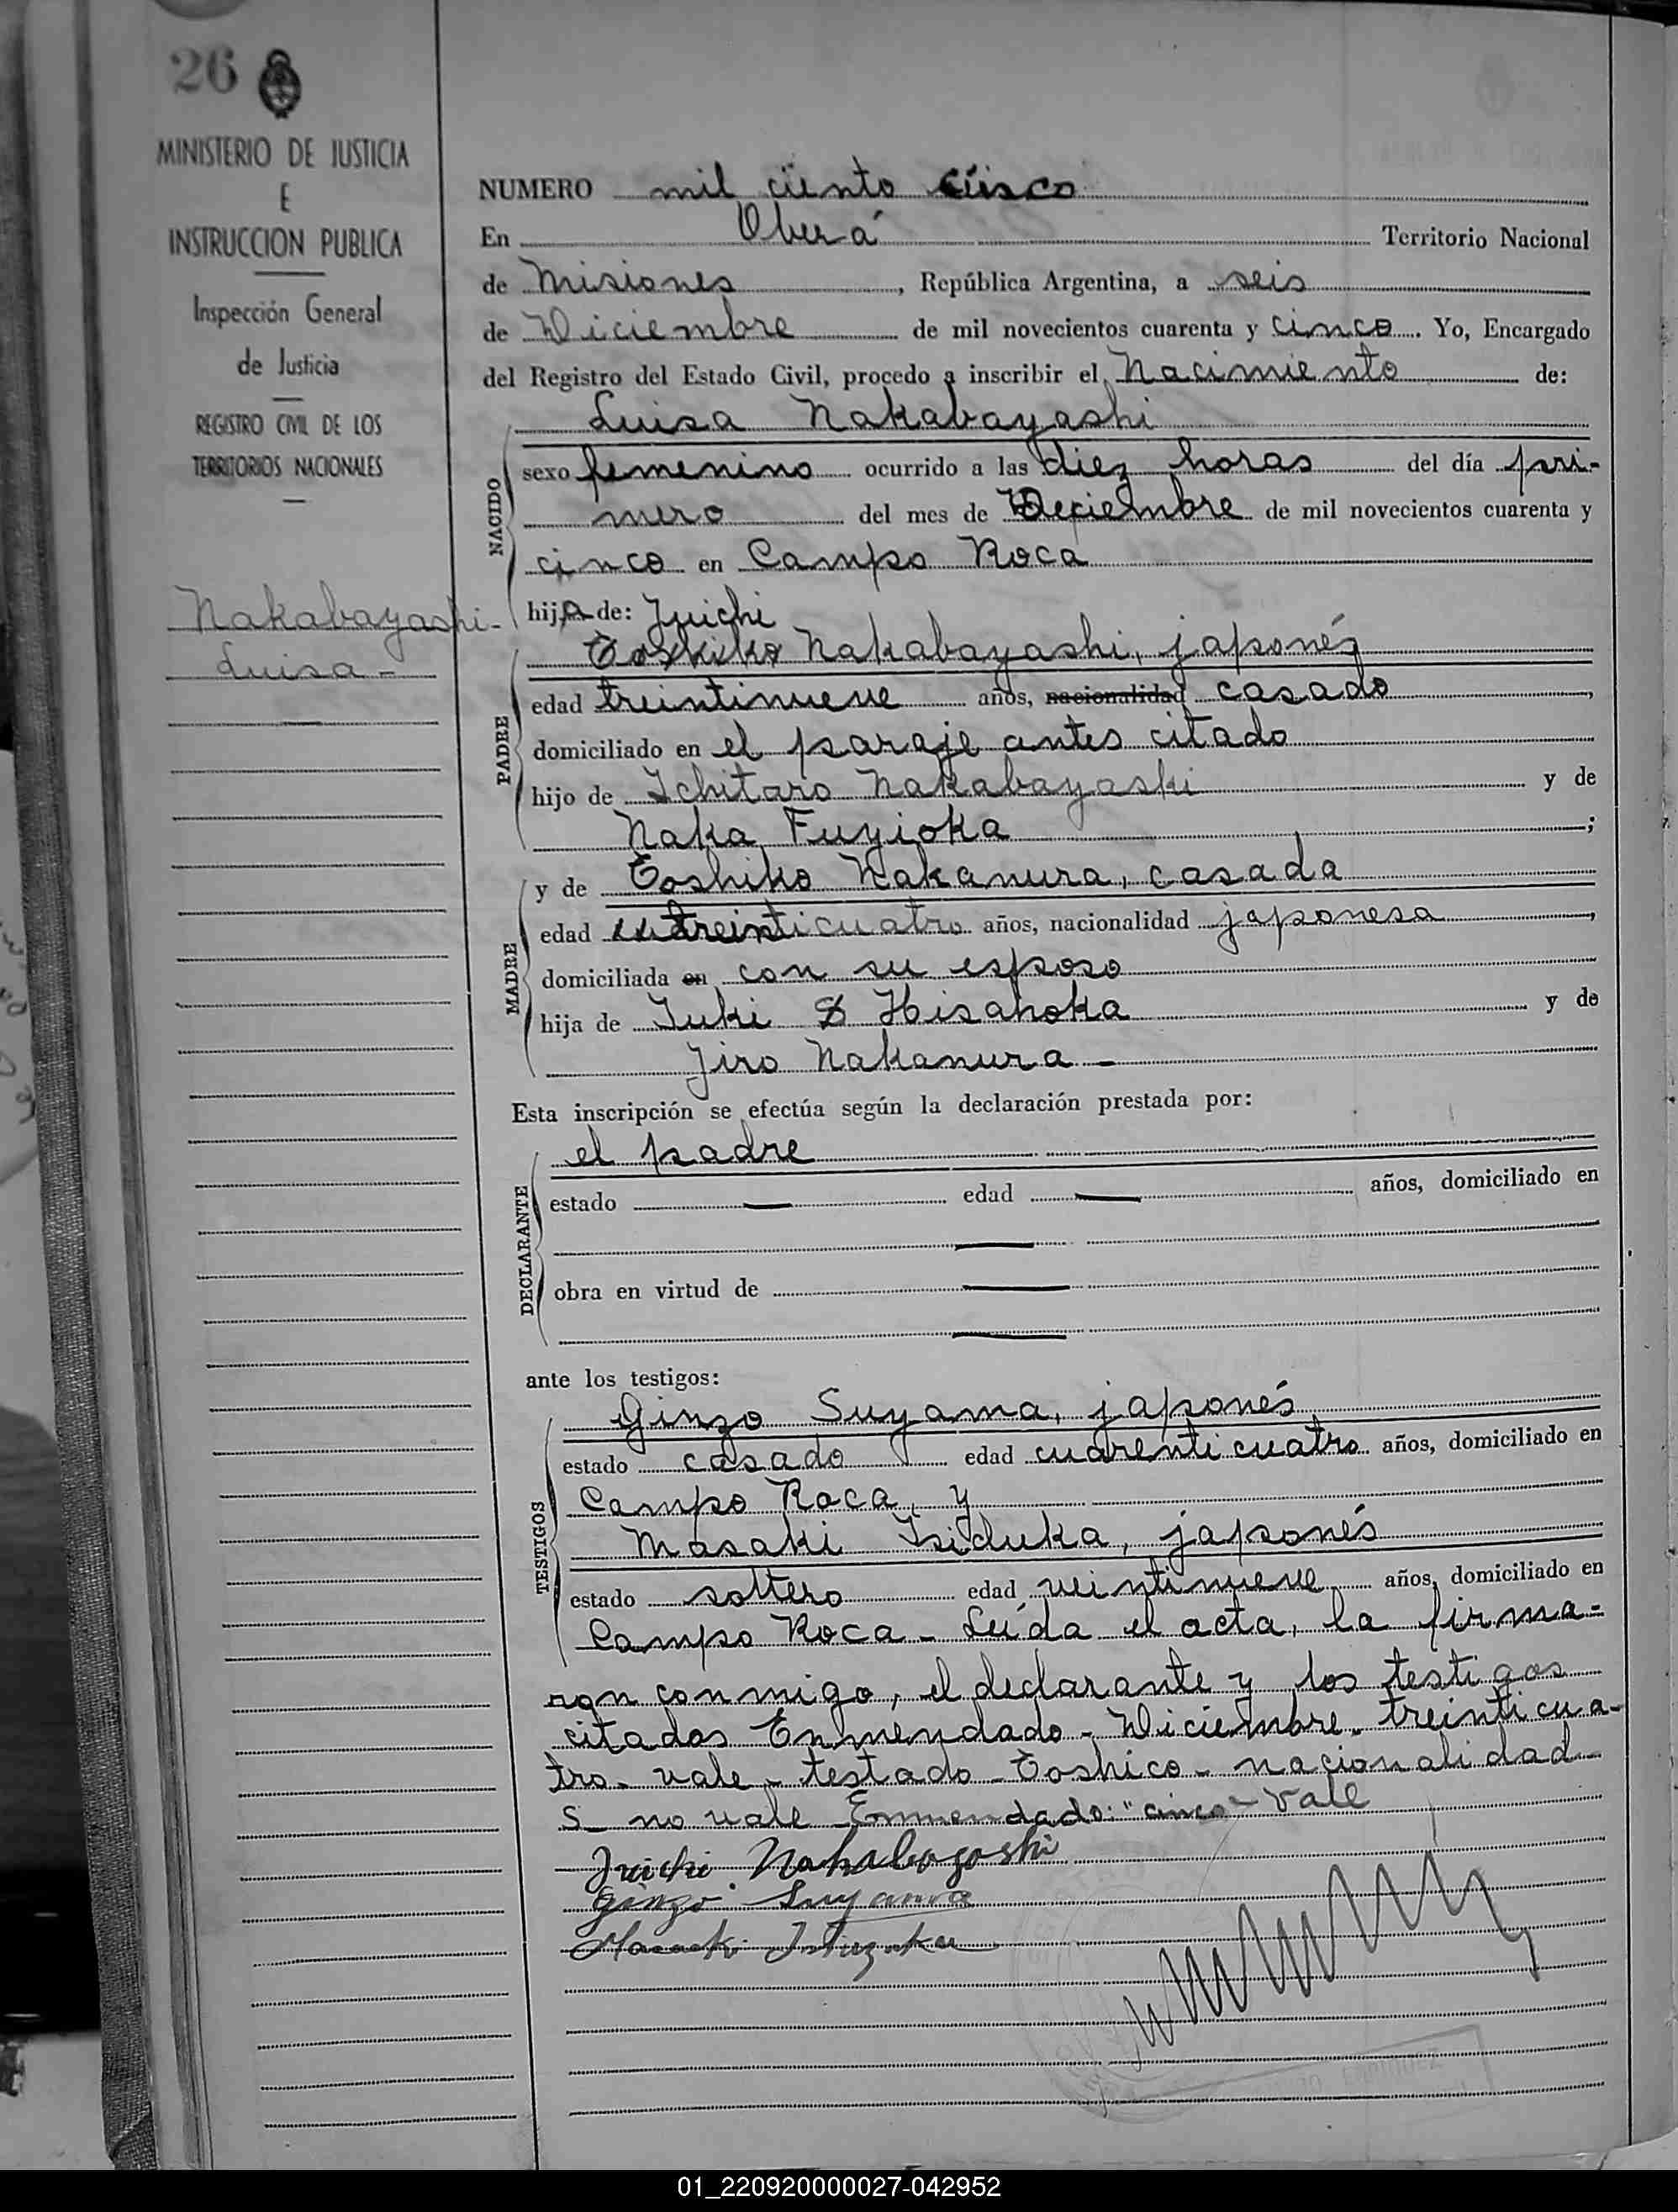 26
MINISTERIO DE JUSTICIA
E
INSTRUCCION PUBLICA
Inspección General
de Justicia
REGISTRO CIVIL DE LOS
TERRITORIOS NACIONALES
Nakabayashi-
Luisa-
NUMERO mil ciento cinco
En Oberá Territorio Nacional
de Misiones, República Argentina, a seis
de Diciembre de mil novecientos cuarenta y cinco. Yo, Encargado
del Registro del Estado Civil, procedo a inscribir el Nacimiento de:
Luisa Nakabayashi
NACIDO
sexo femenino ocurrido a las diez horas del día pri-
mero del mes de Diciembre de mil novecientos cuarenta y
cinco en Campo Roca
hija de: Juichi
PADRE
Toshiko Nakabayashi, japonés
edad treintinueve años, nacionalidad casado,
domiciliado en el paraje antes citado
hijo de Ichitaro Nakabayashi y de
Naka Fuyioka;
MADRE
y de Toshiko Nakanura, casada
edad treinticuatro años, nacionalidad japonesa,
domiciliada en con su esposo
hija de Iuki S Hisahoka y de
Jiro Nakanura-
Esta inscripción se efectúa según la declaración prestada por:
DECLARANTE
el padre
estado — edad — años, domiciliado en
—
obra en virtud de —
—
ante los testigos:
TESTIGOS
Ginzo Suyama, japonés
estado casado edad cuarenticuatro años, domiciliado en
Campo Roca, y
Masaki Isiduka, japonés
estado soltero edad veintinueve años, domiciliado en
Campo Roca- Leída el acta, la firma-
ron conmigo, el declarante y los testigos
citados Enmendado- Diciembre- treinticua-
tro- vale- testado- Toshico- nacionalidad-
S- no vale Enmendado: "cinco"- Vale
Juichi Nakabayashi
Ginzo Suyama
Masaki Isizuka
01_220920000027-042952